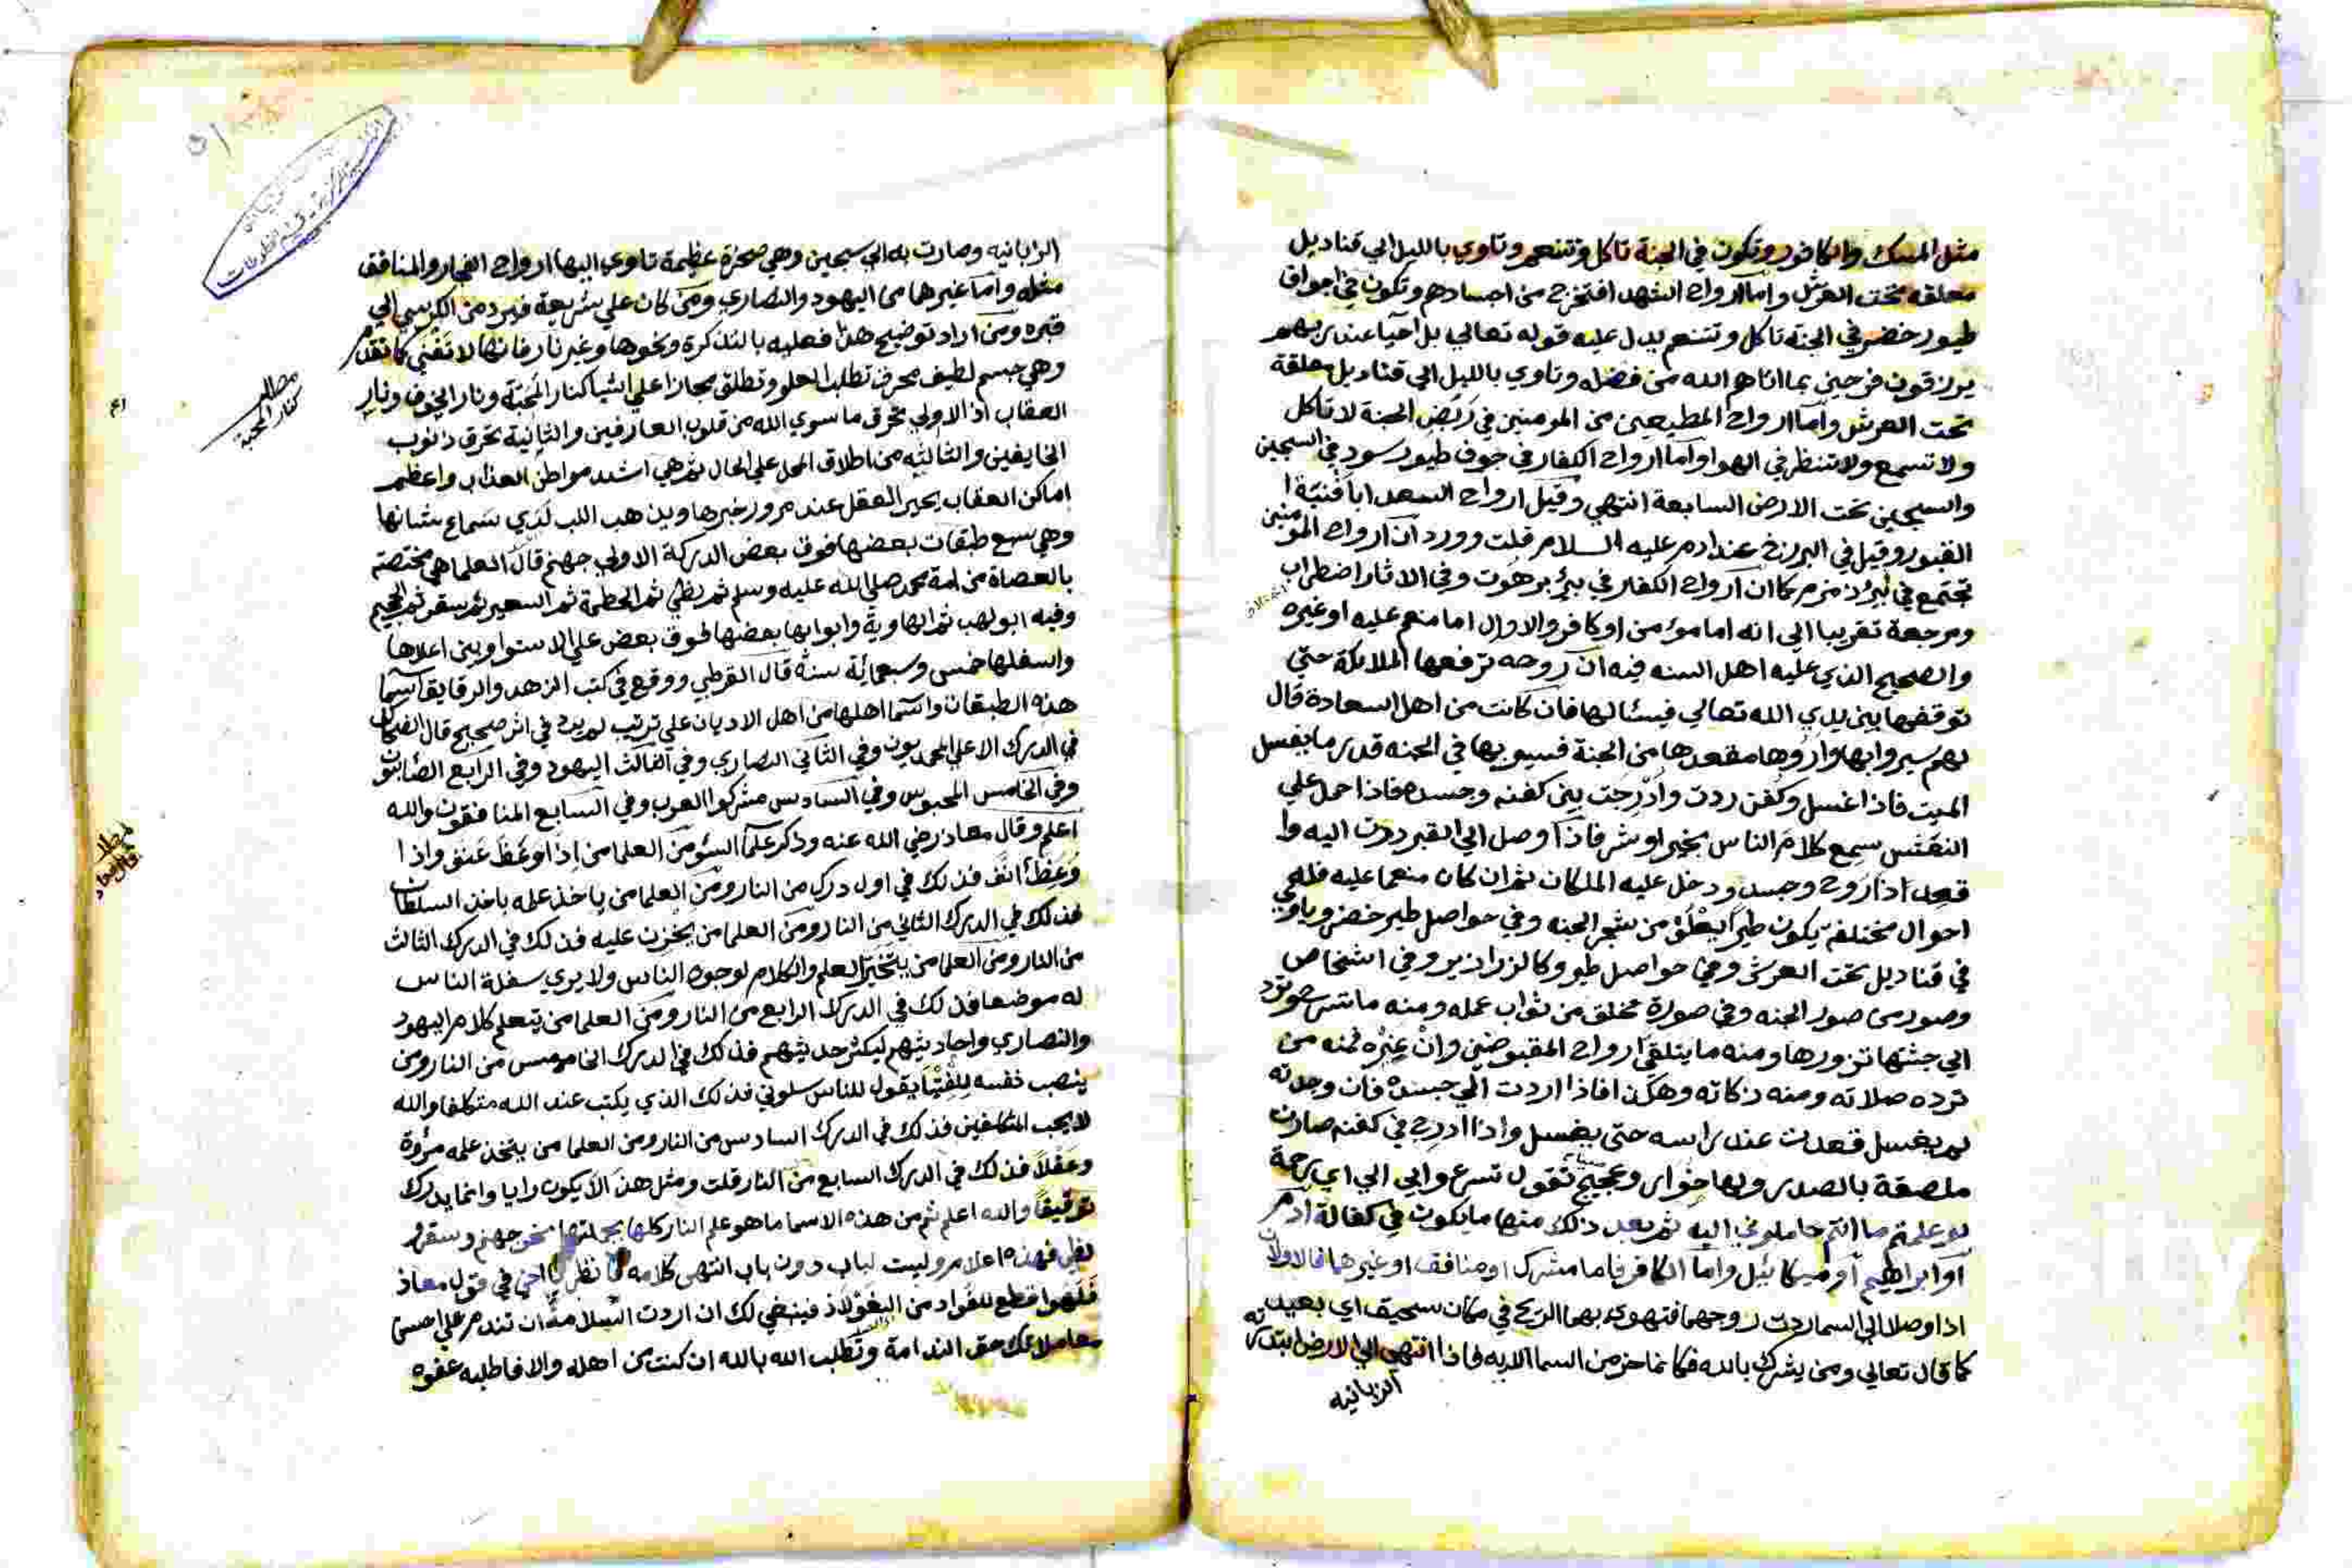 مثل المسك والكافور وتكون في الجنة تاكل وتتنعم وتاوي بالليل الي قناديل
معلقه تحت العرش واما ارواح الشهدا فتخرج من اجسادهم وتكون في اجواف
طيور خضر في الجنة تاكل وتتنعم يدل عليه قوله تعالي بل احيا عند ربهم
يرزقون فرحين بما اتاهم الله من فضله وتاوي بالليل الي قناديل معلقة
تحت العرش واما ارواح المطيعين من المومنين في ربض الجنة لا تاكل
ولا تسمع ولا تنظر في الهوا واما ارواح الكفار في جوف طيور سود في السجين
والسجين تحت الارض السابعة انتهي وقيل ارواح السعدا بافنية ا
القبور وقيل في البرزخ عند ادم عليه السلام قلت وورد ان ارواح المومنين
تجتمع في بئر زمزم كما ان ارواح الكفار في بئر برهوت وفي الاثار اضطراب
ومرجعة تقريبا الي انه اما مؤمن او كافر والاول اما منعم عليه او غيره
والصحيح الذي عليه اهل السنه فيه ان روحه ترفعها الملايكة حتي
توقفها بين يدي الله تعالي فيسئالها فان كانت من اهل السعادة قال
لهم سيروا بها واروها مقعدها من الجنة فسيرو بها في الجنه قدر ما يغسل
الميت فاذا غسل وكفن ردت وادرجت بين كفنه وجسده فاذا حمل علي
النعش سمع كلام الناس بخير او شر فاذا وصل الي القبر ردت اليه وا
قعد اذا روح وجسد ودخل عليه الملكان ثم ان كان منعما عليه فله في
احوال مختلفة يكون طيرا يعلق من شجر الجنه وفي حواصل طير خضر وياوي
في قناديل تحت العرش وفي حواصل طيور كالزرازير وفي اشخاص
وصور من صور الجنه وفي صورة تخلق من ثواب عمله ومنه ما تسرح وترد
الي جثتها تزورها ومنه ما يتلقي ارواح المقبوضين وان غيره فمنه من
ترده صلاته ومنه زكاته وهكذا فاذا اردت الي جسده فان وجدته
لم يغسل قعدت عند راسه حتي يغسل واذا ادرج في كفنه صارت
ملصقة بالصدر ولها خوار وعجيج تقول تسرعوا بي الي اي رحمة
لو علمتم ما انتم حاملوني اليه ثم بعد ذلك منها ما يكون في كفالة ادم
او ابراهيم او ميكائيل واما الكافر فاما مشرك او منافق او غيرهما فالاولان
اذا وصلا الي السما ردت روحهما فتهوي بهما الريح في مكان سحيق اي بعيد
كما قال تعالي ومن يشرك بالله فكانما خر من السما الايه فاذا انتهي الي الارض ابتدرته
الزبانيه
الزبانيه وصارت به الي سجين وهي صخرة عظيمة تاوي اليها ارواح الفجار والمنافق
مثله واما غيرهما من اليهود والنصاري ومن كان علي شريعة فيرد من الكرسي الي
قبره ومن اراد توضيح هذا فعليه بالتذكرة ونحوها وغير نار فانها لا تفني كما تقدم
وهي جسم لطيف محرق تطلب العلو وتطلق مجازا علي اشيا كنار المحبة ونار الخوف ونار
العقاب اذ الاولي تحرق ما سوي الله من قلوب العارفين والثانية تحرق ذنوب
الخايفين والثالثه من اطلاق المحل علي الحال ثم هي اشد مواطن العذاب واعظم
اماكن العقاب يحير العقل عند مرور خبرها ويذهب اللب لدي سماع شانها
وهي سبع طبقات بعضها فوق بعض الدركة الاولي جهنم قال العلما هي مختصة
بالعصاة من امة محمد صلي الله عليه وسلم ثم لظي ثم الحطمة ثم السعير ثم سقر ثم الجحيم
وفيه ابو لهب ثم الهاوية وابوابها بعضها فوق بعض علي الاستوا وبين اعلاها
واسفلها خمس وسبعمائة سنة قال القرطبي ووقع في كتب الزهد والرقايق اسما
هذه الطبقات واسما اهلها من اهل الاديان علي ترتيب لم يرد في اثر صحيح قال الضحاك
في الدرك الاعلي المحمديون وفي الثاني النصاري وفي الثالث اليهود وفي الرابع الصابئون
وفي الخامس المجوس وفي السادس مشركوا العرب وفي السابع المنافقون والله
اعلم وقال معاذ رضي الله عنه وذكر علما السؤ من العلما من اذا وعظ عنف واذا
وعظ انف فذلك في اول درك من النار ومن العلما من ياخذ علمه باخذ السلطان
فذلك في الدرك الثاني من النار ومن العلما من يخزن عليه فذلك في الدرك الثالث
من النار ومن العلما من يتخير العلم والكلام لوجوه الناس ولا يري سفلة الناس
له موضعا فذلك في الدرك الرابع من النار ومن العلما من يتعلم كلام اليهود
والنصاري واحاديثهم ليكثر حديثهم فذلك في الدرك الخامس من النار ومن
ينصب نفسه للفتيا يقول للناس سلوني فذلك الذي يكتب عند الله متكلفا والله
لا يحب المتكلفين فذلك في الدرك السادس من النار ومن العلما من يتخذ علمه مروة
وعقلا فذلك في الدرك السابع من النار قلت ومثل هذا لا يكون رايا وانما يدرك
توقيفا والله اعلم ثم من هذه الاسما ما هو علم النار كلها بجملتها نحو جهنم وسقر و
لظي فهذه اعلام وليست لباب دون باب انتهي كلامه فانظر يا اخي في قول معاذ
فلهوا قطع للفؤاد من الفولاذ فينبغي لك ان اردت السلامة ان تندم علي احسن
معاملاتك حق الندامة وتطلب الله بالله ان كنت من اهله والا فاطلبه عفوه
مطلب
كنار المحبة